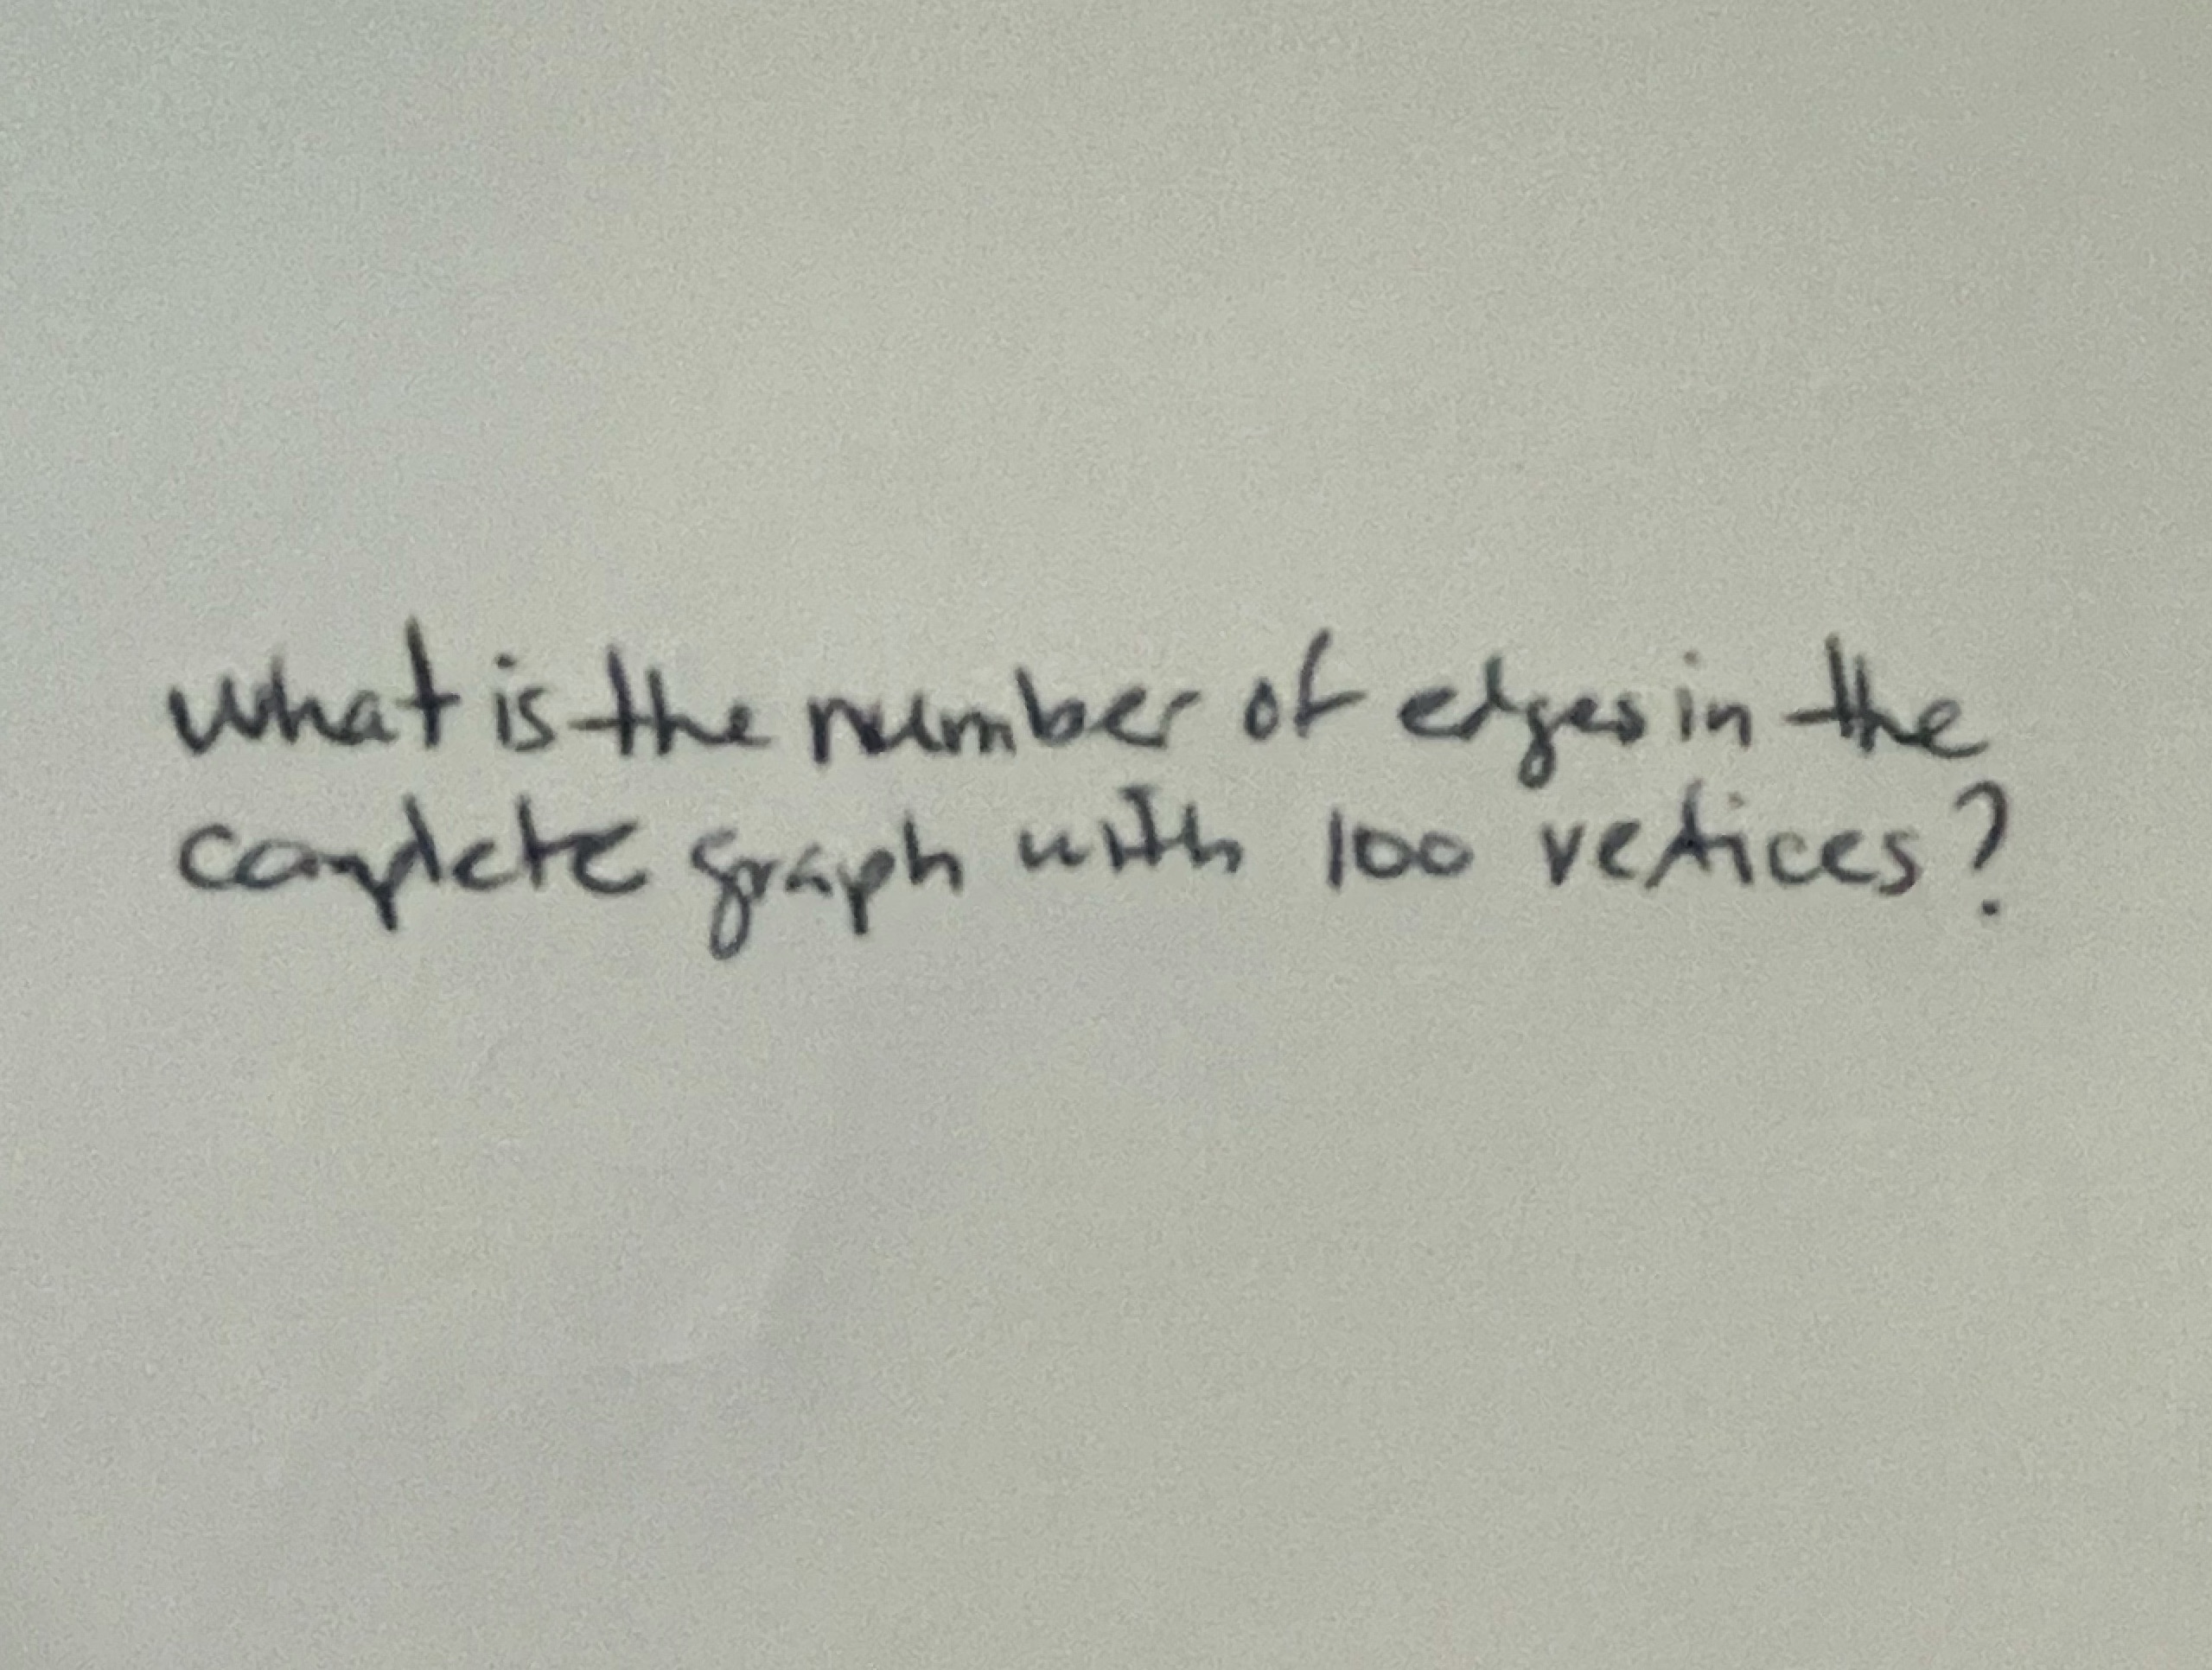 what is the number of edges in the
complete graph with 100 vetices?